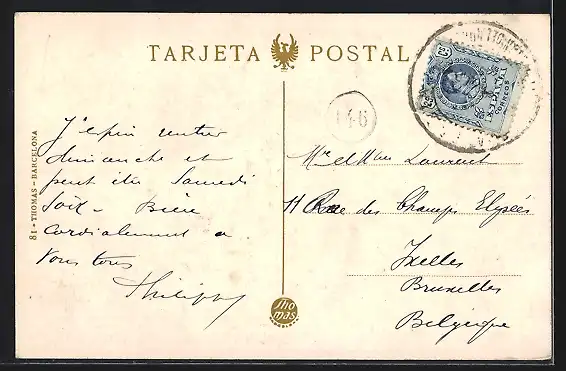 TARJETA POSTAL
146
J'espère rentrer
dimanche et
peut être Samedi
Soir. Bien
cordialement a
vous tous
Philippe
Mr et Mme Laurent
11 Rue des Champs Elysées
Ixelles
Bruxelles
Belgique
81 - THOMAS - BARCELONA
Thomas
CORREOS